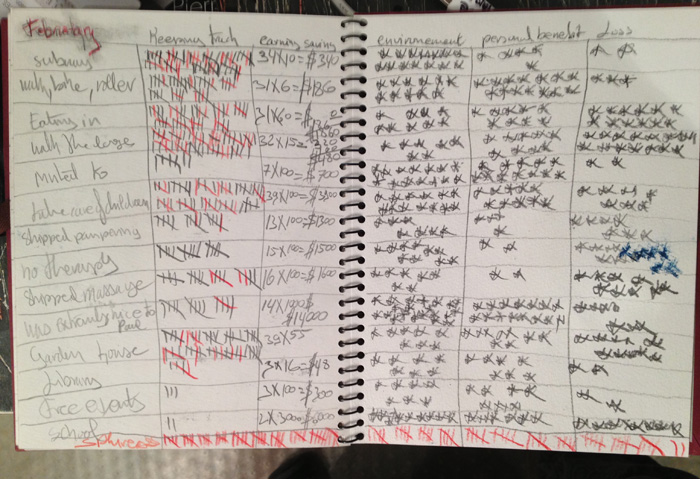 February Keeping track earning saving environnement personal benefit Loss
subway 34x10=$340
walk, bike, roller 31x6=$1860
Eating in 31x60=$
with the large 32x15=
invited to 7x100=$700
take care of children
skipped pampering 13x100=$1300
no therapy 15x100=$1500
skipped massage 16x100=$1600
was extremely nice to Paul 14x1000$ $14000
Garden House 39x55
library 3x16=$48
free events 3x100=$300
school 2x300=